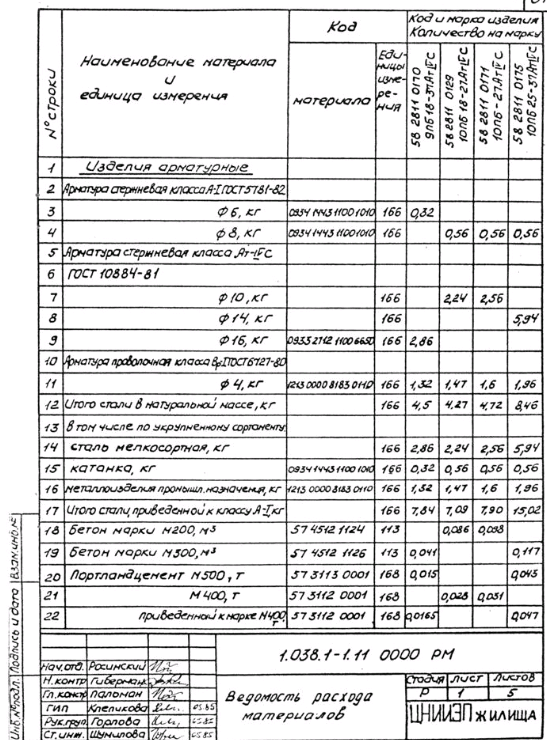 Код
Код и марка изделия
Количество на марку
№ строки
Наименование материала
и
единица измерения
материала
Еди-
ницы
изме-
ре-
ния
58 2811 0170
9ПБ 18-37АтIVС
58 2811 0129
10ПБ 18-27АтIVС
58 2811 0171
10ПБ-27АтIVС
58 2811 0175
10ПБ 25-37АтIVС
1 Изделия арматурные
2 Арматура стержневая класса А-I ГОСТ 5781-82
3 ф 6, кг 0934 1443 1100 1010 166 0,32
4 ф 8, кг 0934 1443 1100 1010 166 0,56 0,56 0,56
5 Арматура стержневая класса Ат-IVС
6 ГОСТ 10884-81
7 ф 10, кг 166 2,24 2,56
8 ф 14, кг 166 5,94
9 ф 16, кг 0933 2712 1100 6650 166 2,86
10 Арматура проволочная класса ВрI ГОСТ 6727-80
11 ф 4, кг 1213 0000 8183 0110 166 1,32 1,47 1,6 1,96
12 Итого стали в натуральной массе, кг 166 4,5 4,27 4,72 8,46
13 в том числе по укрупненному сортаменту
14 сталь мелкосортная, кг 166 2,86 2,24 2,56 5,94
15 катанка, кг 0934 1443 1100 1010 166 0,32 0,56 0,56 0,56
16 металлоизделия промышл. назначения, кг 1213 0000 8183 0110 166 1,32 1,47 1,6 1,96
17 Итого стали, приведенной к классу А-I, кг 166 7,84 7,09 7,90 15,02
18 Бетон марки М200, м³ 57 4512 1124 113 0,086 0,098
19 Бетон марки М300, м³ 57 4512 1126 113 0,041 0,117
20 Портландцемент М500, т 57 3113 0001 168 0,015 0,043
21 М 400, т 57 3112 0001 168 0,028 0,031
22 приведенной к марке М400, т 57 3112 0001 168 0,0165 0,047
Инв.№ подл. Подпись и дата Взам.инв.№
1.038.1-1.11 0000 РМ
Нач.отд. Росинский
Н.контр Гиберман
Гл.конст Паломан
ГИП Клепикова 05.85
Рук.груп. Горлова 05.85
Ст.инж. Шумилова 05.85
Ведомость расхода
материалов
Стадия Лист Листов
Р 1 5
ЦНИИЭП жилища